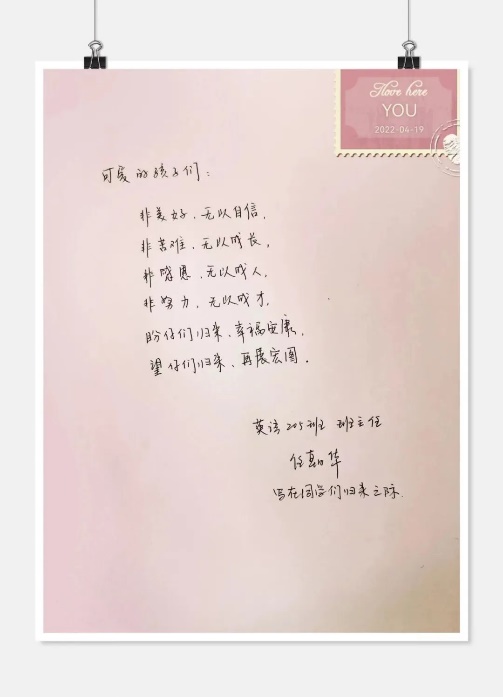 Ilove here
YOU
2022-04-19
可爱的孩子们：
非美好，无以自信，
非苦难，无以成长，
非感恩，无以成人，
非努力，无以成才，
盼仔们归来、幸福安康，
望仔们归来、再展宏图。
英语205班 班主任
任嘉华
写在同学们归来之际.